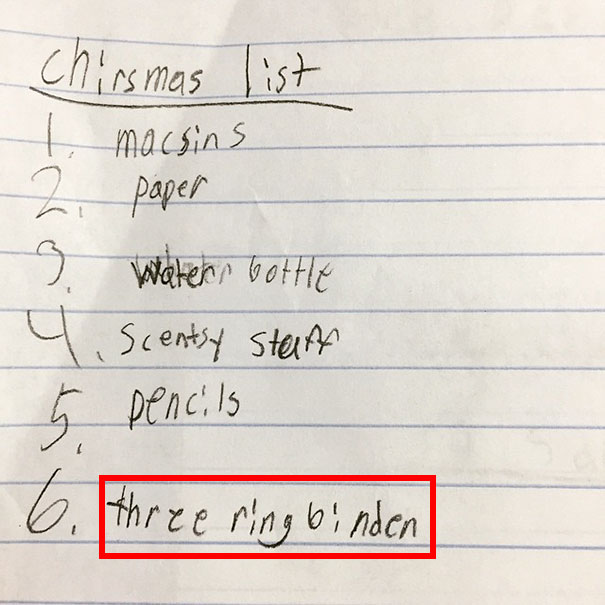 chirsmas list
1. macsins
2. paper
3. water bottle
4. scentsy stuff
5. pencils
6. three ring binden